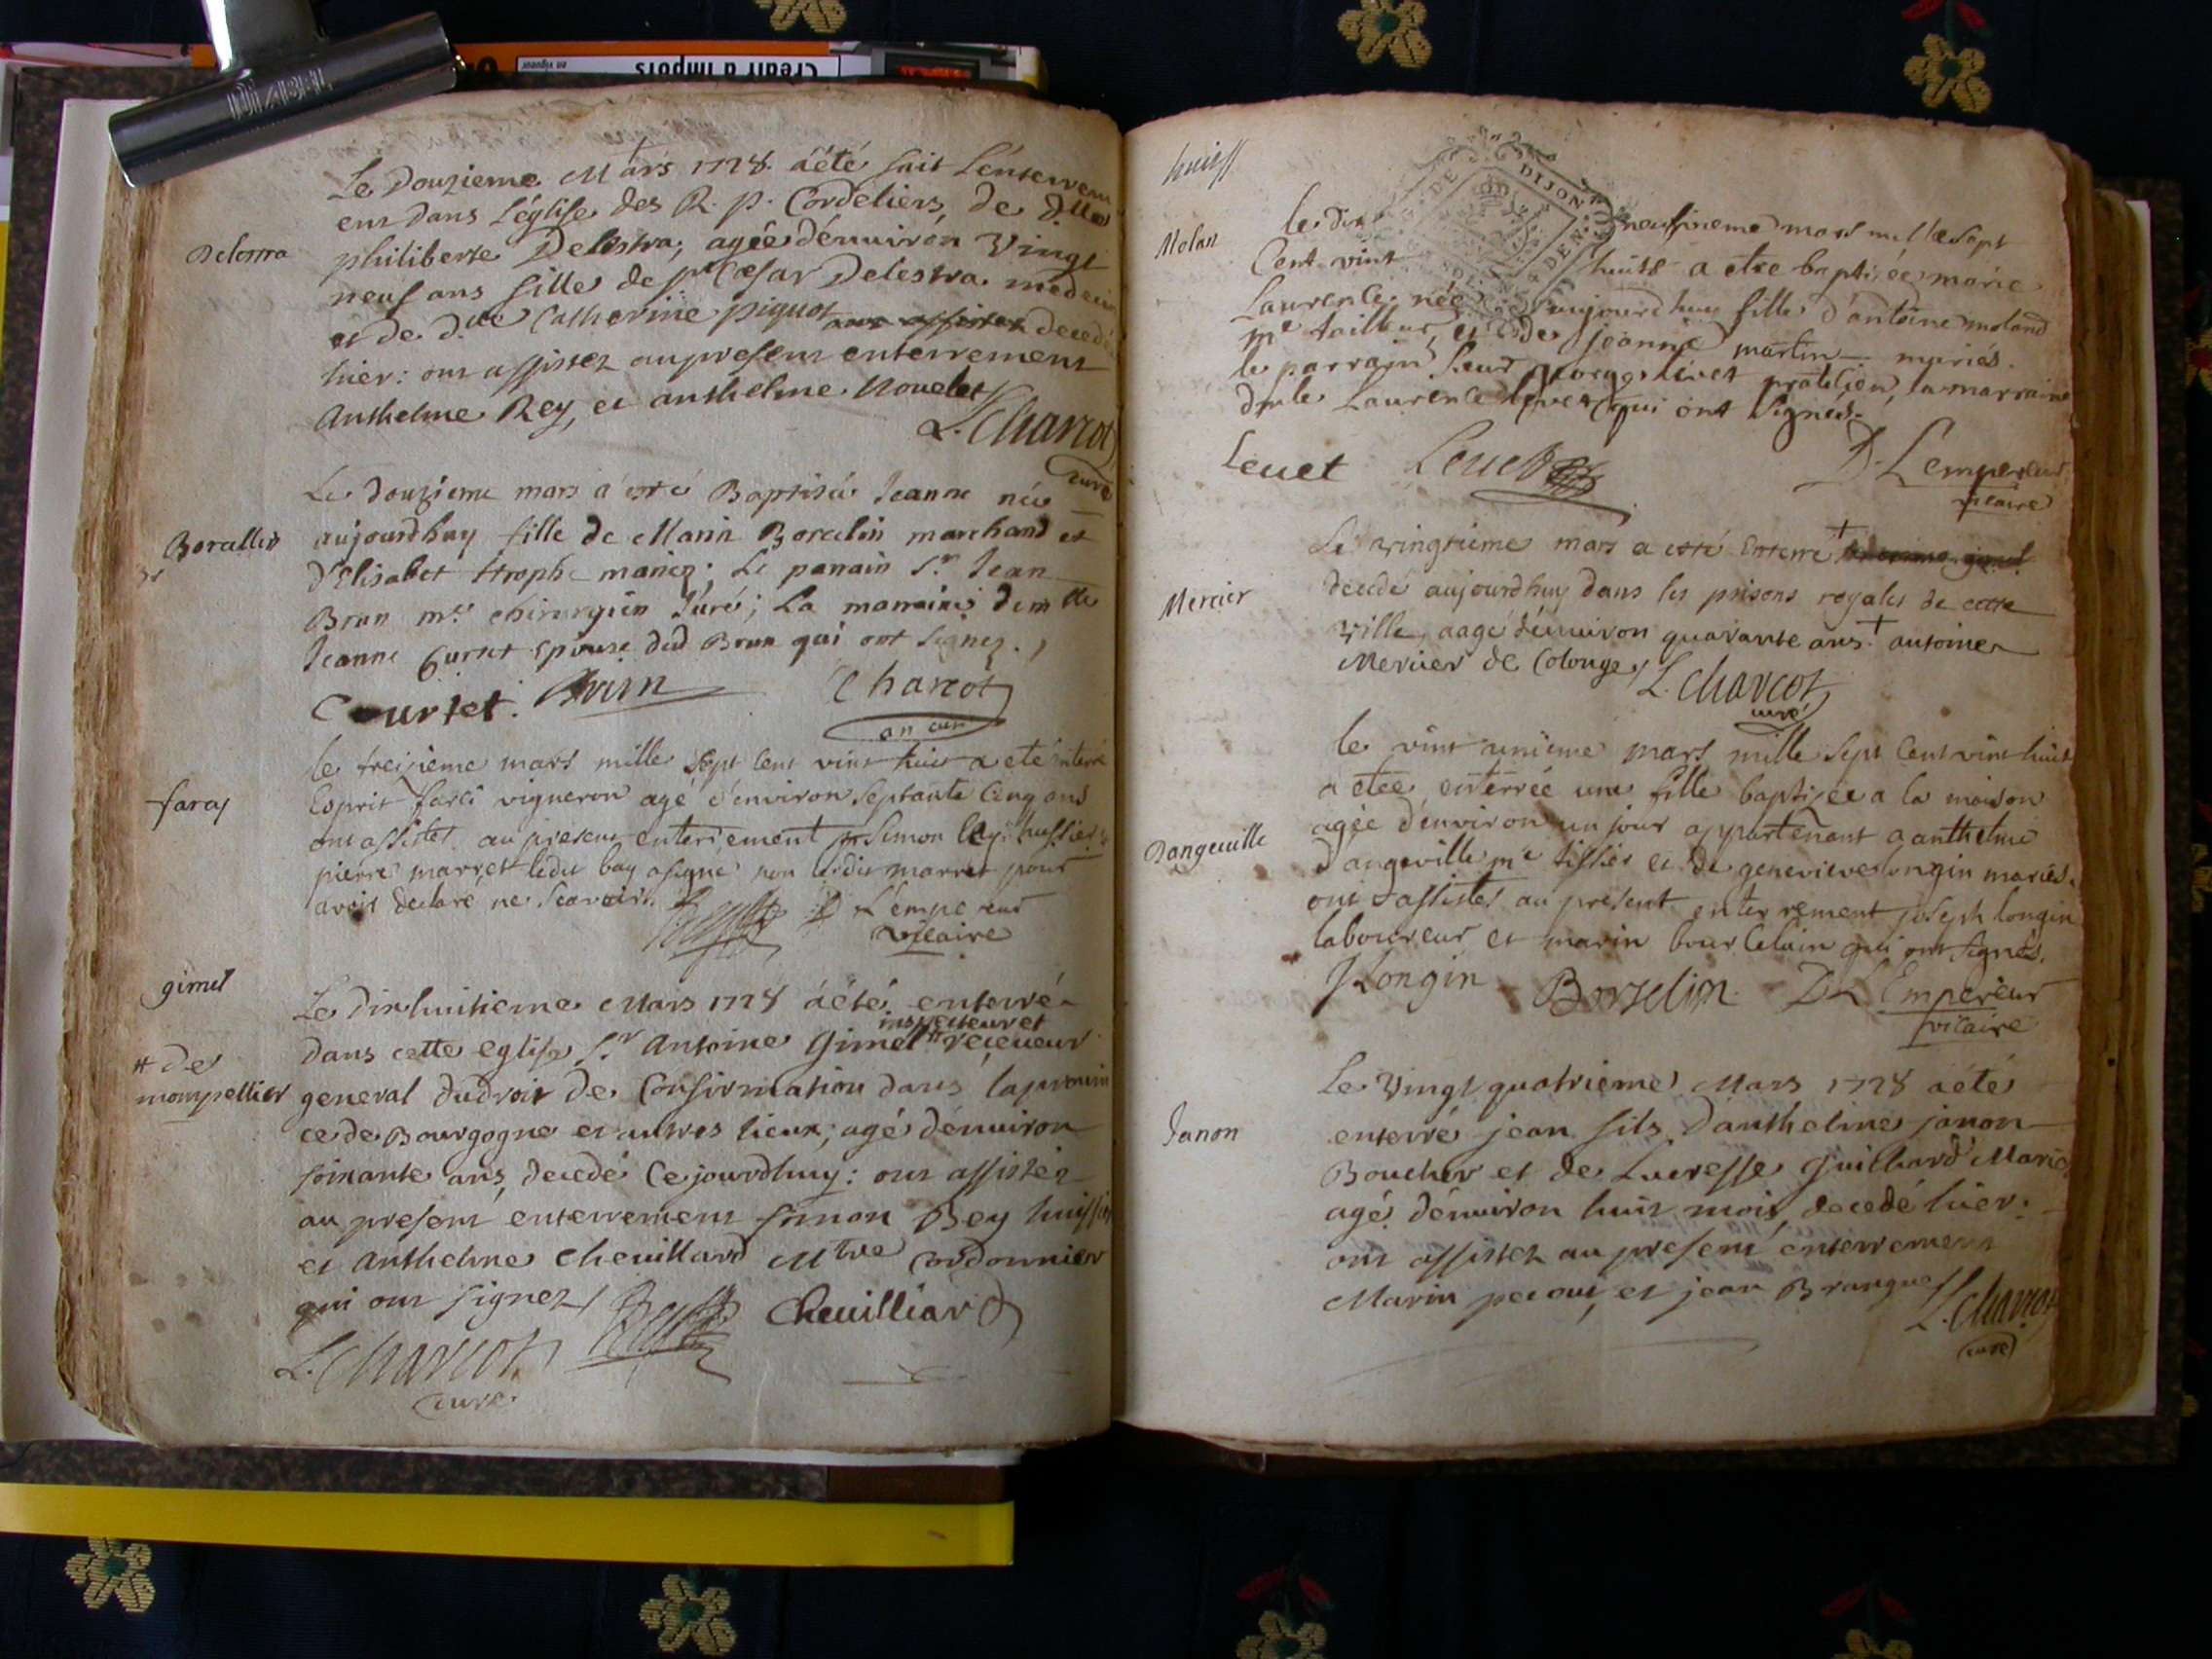 Credit d'impôts
en vigueur
Le Douzieme Mars 1728. a été fait L'enterrem
ent dans L'église des R. P. Cordeliers, de D.lle
Delestra
philiberte Delestra, agée d'enuiron Vingt
neuf ans fille de Cesar Delestra medecin
et de d.lle Catherine piquot decedée
hier: ont assistez au present enterrement
Anthelme Rey, et anthelme Nouelet
L. Charcot
curé
Le douzieme mars a esté Baptisée Jeanne née
aujourdhuy fille de Marin Borcelin marchand et
d'Elisabet mariez; Le parrain S.r Jean
Brun m.re chirurgien Juré; La marraine dem.lle
Jeanne Curtet Epouse dud Brun qui ont Signez.
Courtet. Brun Charcot
an curé
le treizieme mars mille sept cent vint huit a eté enterré
faraj
Esprit vigneron agé d'environ septante cinq ans
ont assistes au present enterrement Simon bey huissier
pierre marret ledit bay a signé non ledit marret pour
avoir declaré ne scavoir.
Lempereur
vicaire
gimel
Le Dixhuitieme Mars 1728 a été enterré
inspecteur et
dans cette eglise S.r Antoine Gimel # receueur
# de
mompellier
general dudroit de Confirmation dans la provin
ce de Bourgogne et autres lieux, agé d'enuiron
soixante ans, decedé Cejourdhuy: ont assistéz
au present enterrement simon Bey huissier
et Anthelme Cheuillard Mtre Cordonnier
qui ont signez
L. Charcot Cheuilliard
curé.
huit
Molan
DIJON
le dix neufvieme mars mille sept
Cent vint huite a etee baptisée marie
Laurence née aujourdhuy fille d'antoine moland
m.e tailleur, et de jeanne martin mariés.
le parrain Sieur Levet praticien, la marraine
d.lle Laurence Levet qui ont Signes.
Leuet Leuet D. Lempereur
vicaire
Le vingtieme mars a esté Enterré +
Mercier
decedé aujourdhuy dans les prisons royales de cette
ville, aagé d'enuiron quarante ans. + antoine
Mercier de Colonge,
L. Charcot
curé
le vint unieme mars mille sept Cent vint huit
a etee enterrée une fille baptizée a la maison
Dangeuille
agée d'environ un jour appartenant a anthelme
d'angeville m.e tissier et de genevieve longin mariés.
ont assistes au present enterrement joseph longin
laboureur et marin bourcelain qui ont signés.
J Longin Borselin D L Empereur
vicaire
Le Vingt quatrieme Mars 1728 a été
Janon
enterré jean fils d'anthelme janon
Boucher et de Lucresse Guilliard Mariez
agé d'enuiron huit mois, decedé hier:
ont assistez au present enterrement
Marin pecout, et jean Brangue
L. Charcot
curé